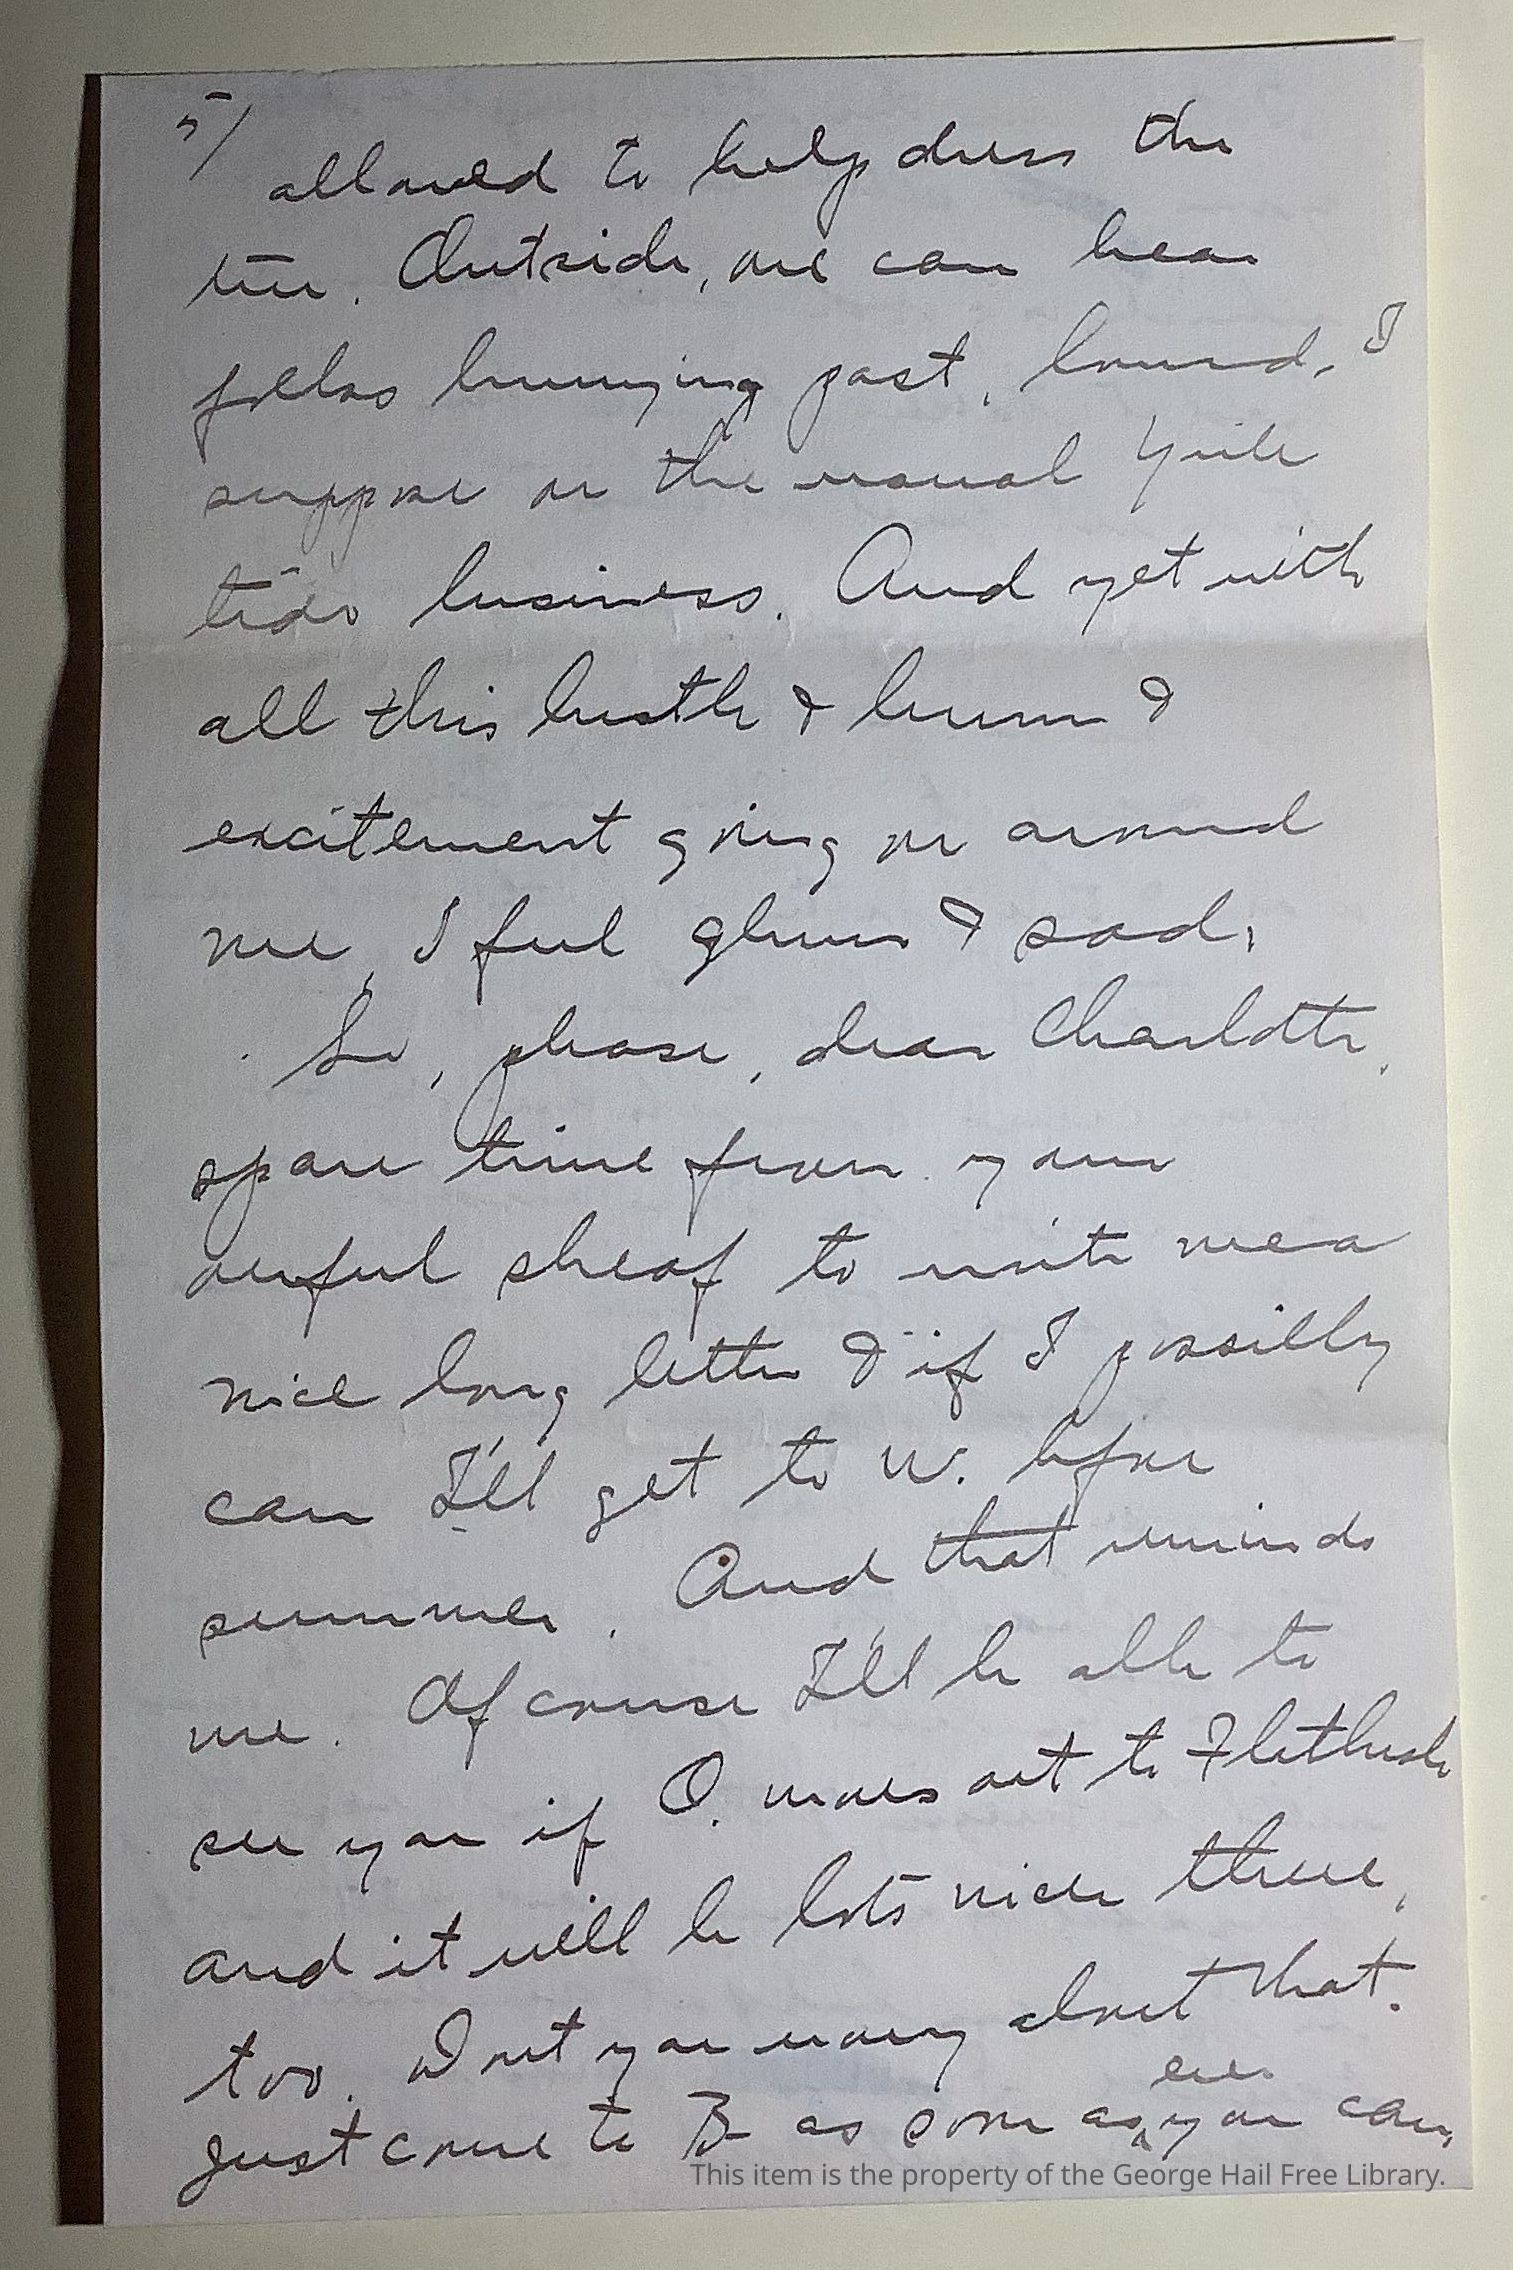 5/
allowed to help dress the
tree. Outside, one can hear
folks hurrying past, bound, I
suppose on the usual Yule
tide business. And yet with
all this bustle & hurry &
excitement going on around
me, I feel glum & sad.
So, please, dear Charlotte,
spare time from your
awful sheaf to write me a
nice long letter & if I possibly
can I'll get to W. before
summer. And that reminds
me. Of course I'll be able to
see you if O. moves out to Flatbush
and it will be lots nicer there,
too. Don't you worry about that.
ever
Just come to B— as soon as you can,
This item is the property of the George Hail Free Library.